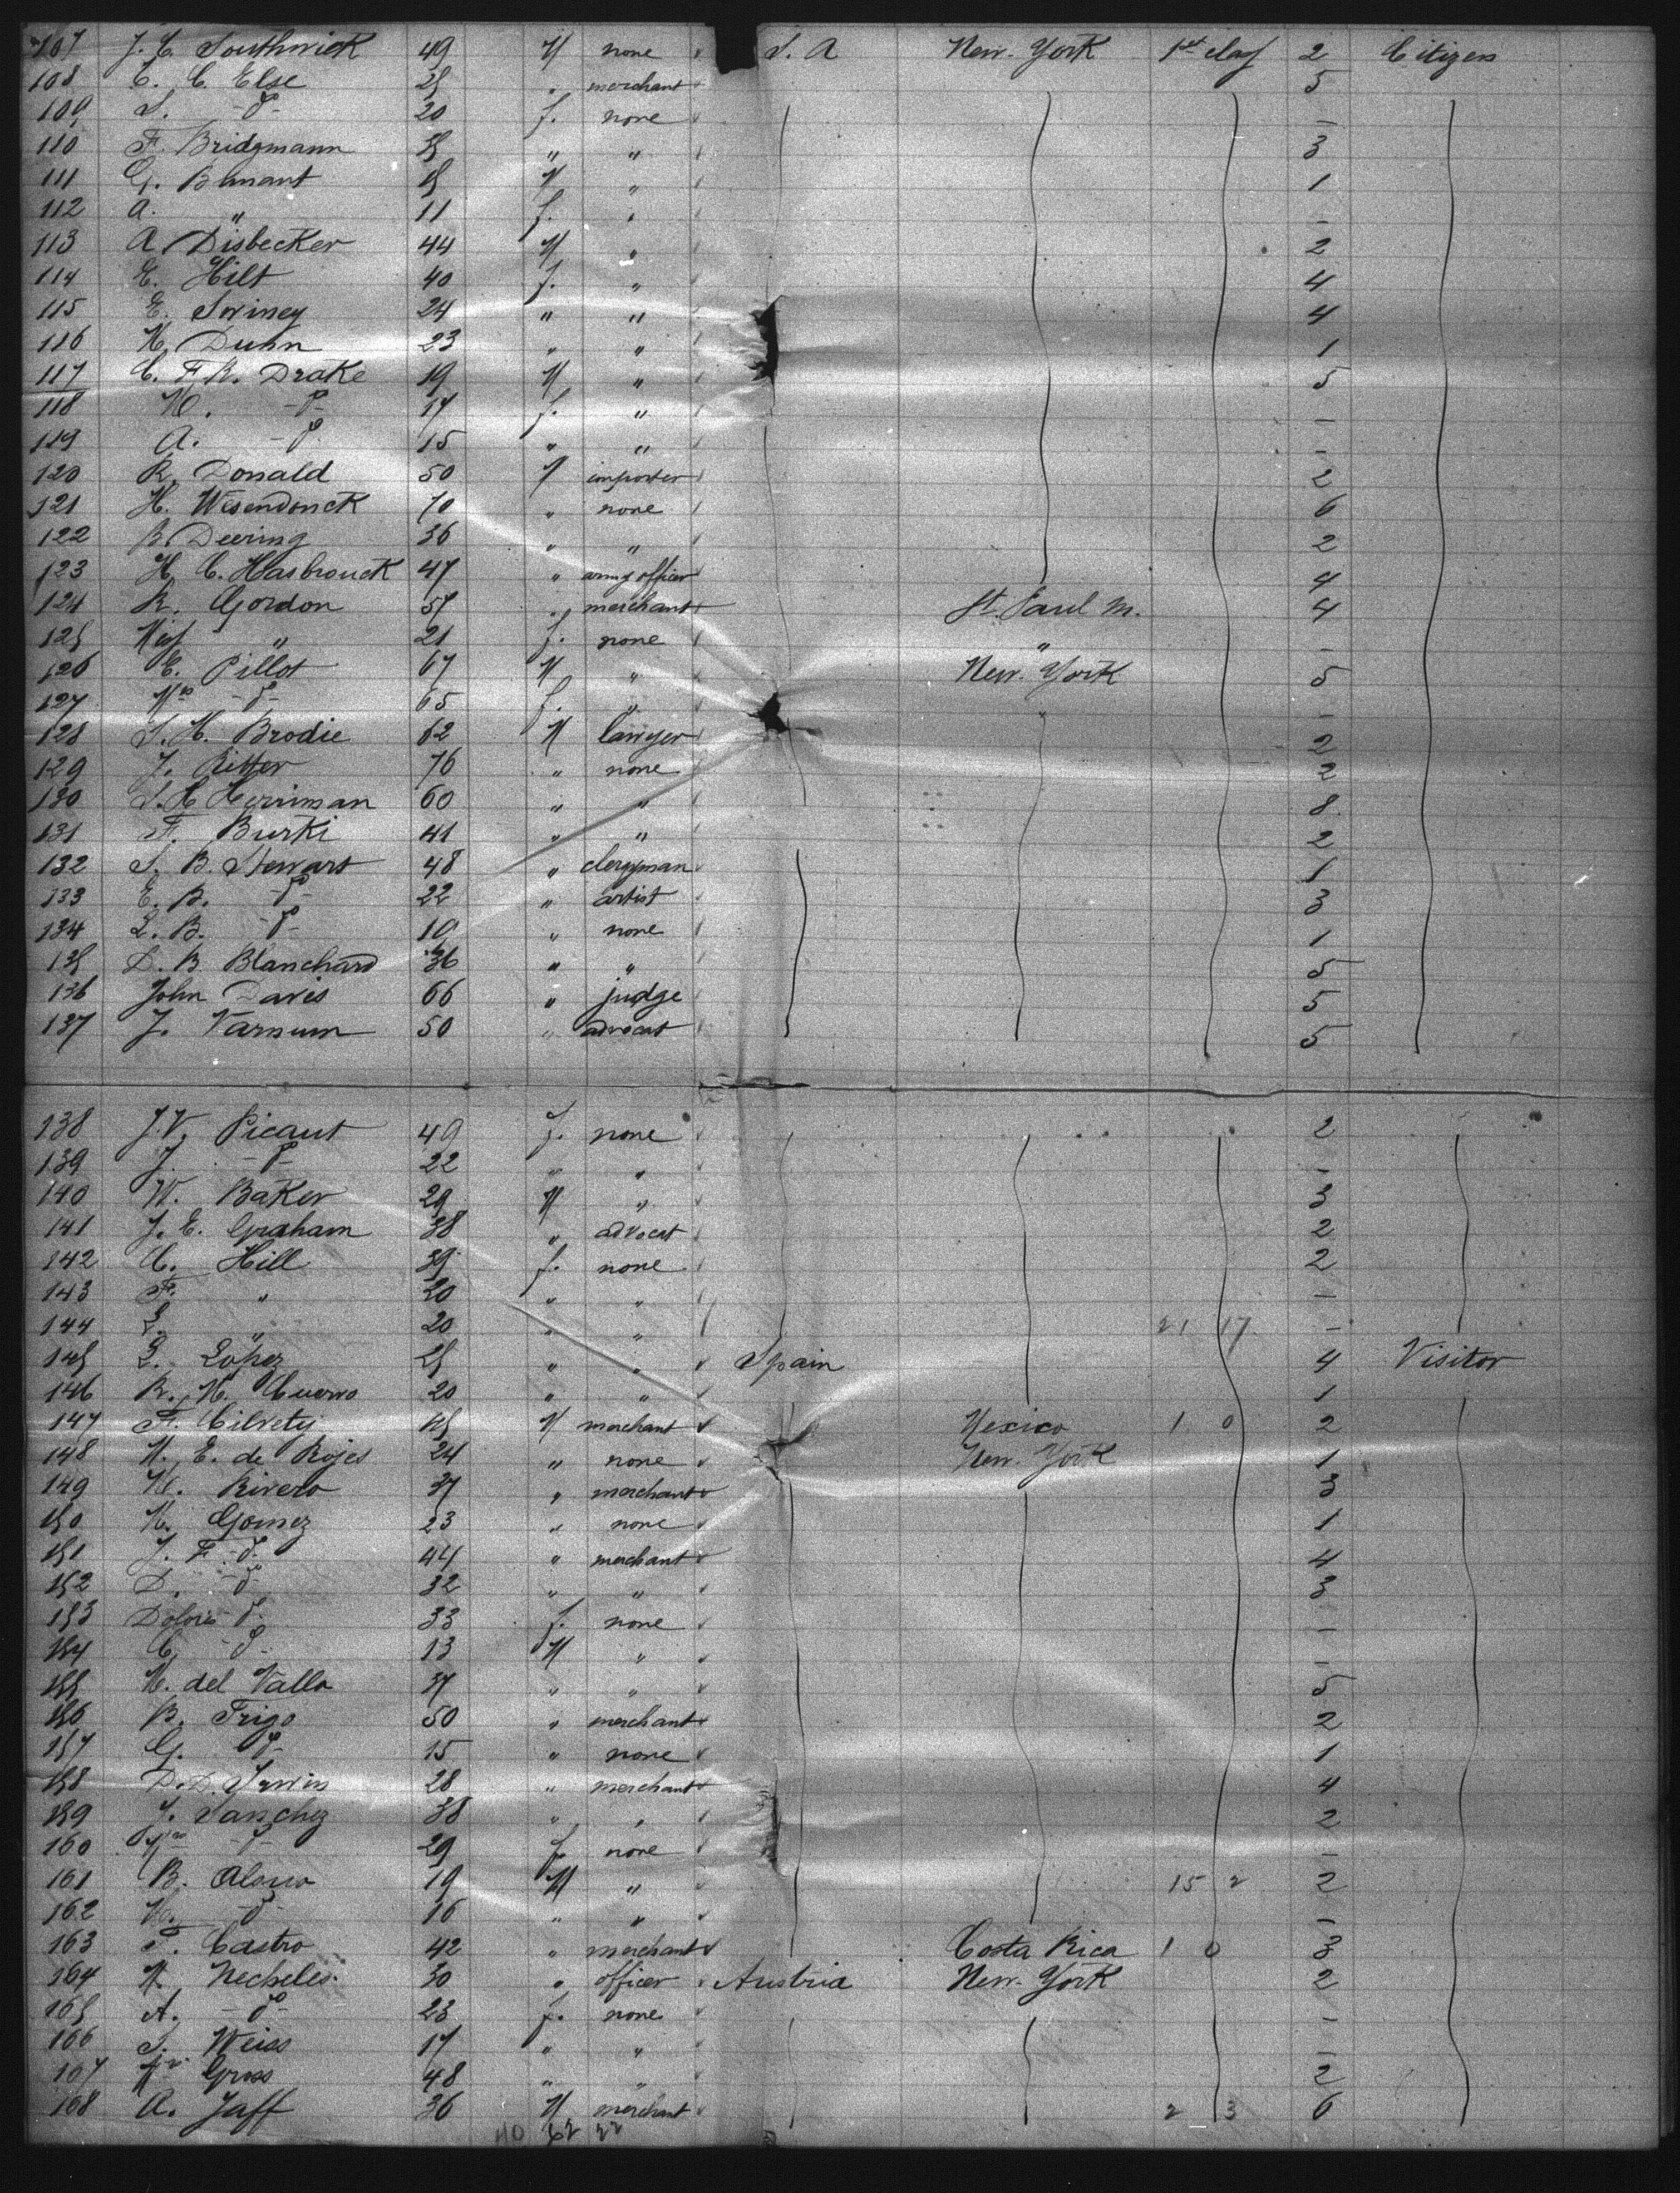 107 J. C. Southwick 49 M none S. A New-York 1st class 2 Citizen
108 C. C. Else 25 " merchant 5
109 S. -d°- 20 f. none -
110 F. Bridgmann " " 3
111 G. M " 1
112 A. " 11 f. " -
113 A. Disbecker 44 M " 2
114 E. Hilt 40 f. " 4
115 E. Swiney 24 " " 4
116 M. Dunn 23 " " 1
117 C. F. R. Drake 19 M " 5
118 M. -d°- 17 f. " -
119 A. -d°- 15 " " -
120 R. Donald 50 M importer 2
121 H. Wesendonck 70 " none 6
122 B. Deering 36 " " 2
123 H. C. Hasbrouck 47 " army officer 4
124 R. Gordon 57 " merchant St. Paul M. 4
125 " 21 f. none " -
126 E. Pillot 67 M " New-York 5
127 Mrs -d°- 65 f. " " -
128 S. H. Brodie 62 M lawyer 2
129 J. Ritter 76 " none 2
130 S. H Herriman 60 " " 8
131 F. Burki 41 " " 2
132 S. B. Stewart 48 " clergyman 1
133 E. B. -d°- 22 " artist 3
134 L. B. -d°- 19 " none 1
135 D. B. Blanchard 36 " " 5
136 John Davis 66 " judge 5
137 J. Varnum 50 " advocat 5
138 J. V. Picaut 49 f. none 2
139 J. -d°- 22 " " -
140 W. Baker 29 M " 3
141 J. E. Graham 38 " advocat 2
142 C. Hill 39 f. none 2
143 F. " 20 " " -
144 L. " 20 " " 21 17 -
145 L. Lopez 25 " " Spain 4 Visitor
146 R. M. Cuervo 20 " " 1
147 F. Cilvety 45 M merchant Mexico 1 0 2
148 M. E. de Rojes 24 " none New-York 1
149 M. Rivero 37 " merchant 3
150 M. Gomez 23 " none 1
151 J. F. -d°- 44 " merchant 4
152 D. -d°- 32 " " 3
153 Dolores -d°- 33 f. none -
154 C. -d°- 13 M " -
155 M. del Valle 37 " " 5
156 B. Trigo 50 " merchant 2
157 G. -d°- 15 " none 1
158 D. D. 28 " merchant 4
159 J. Sanchez 38 " " 2
160 Mrs -d°- 29 f. none -
161 B. Alonso 19 M " 15 2 2
162 M. -d°- 16 " " -
163 F. Castro 42 " merchant Costa Rica 1 0 3
164 M. Necheles 30 " officer Austria New-York 2
165 A. -d°- 23 f. none -
166 S. Weiss 17 " " -
167 Gross 48 " " 2
168 A. Jaff 36 M merchant 2 3 6
40 62 22